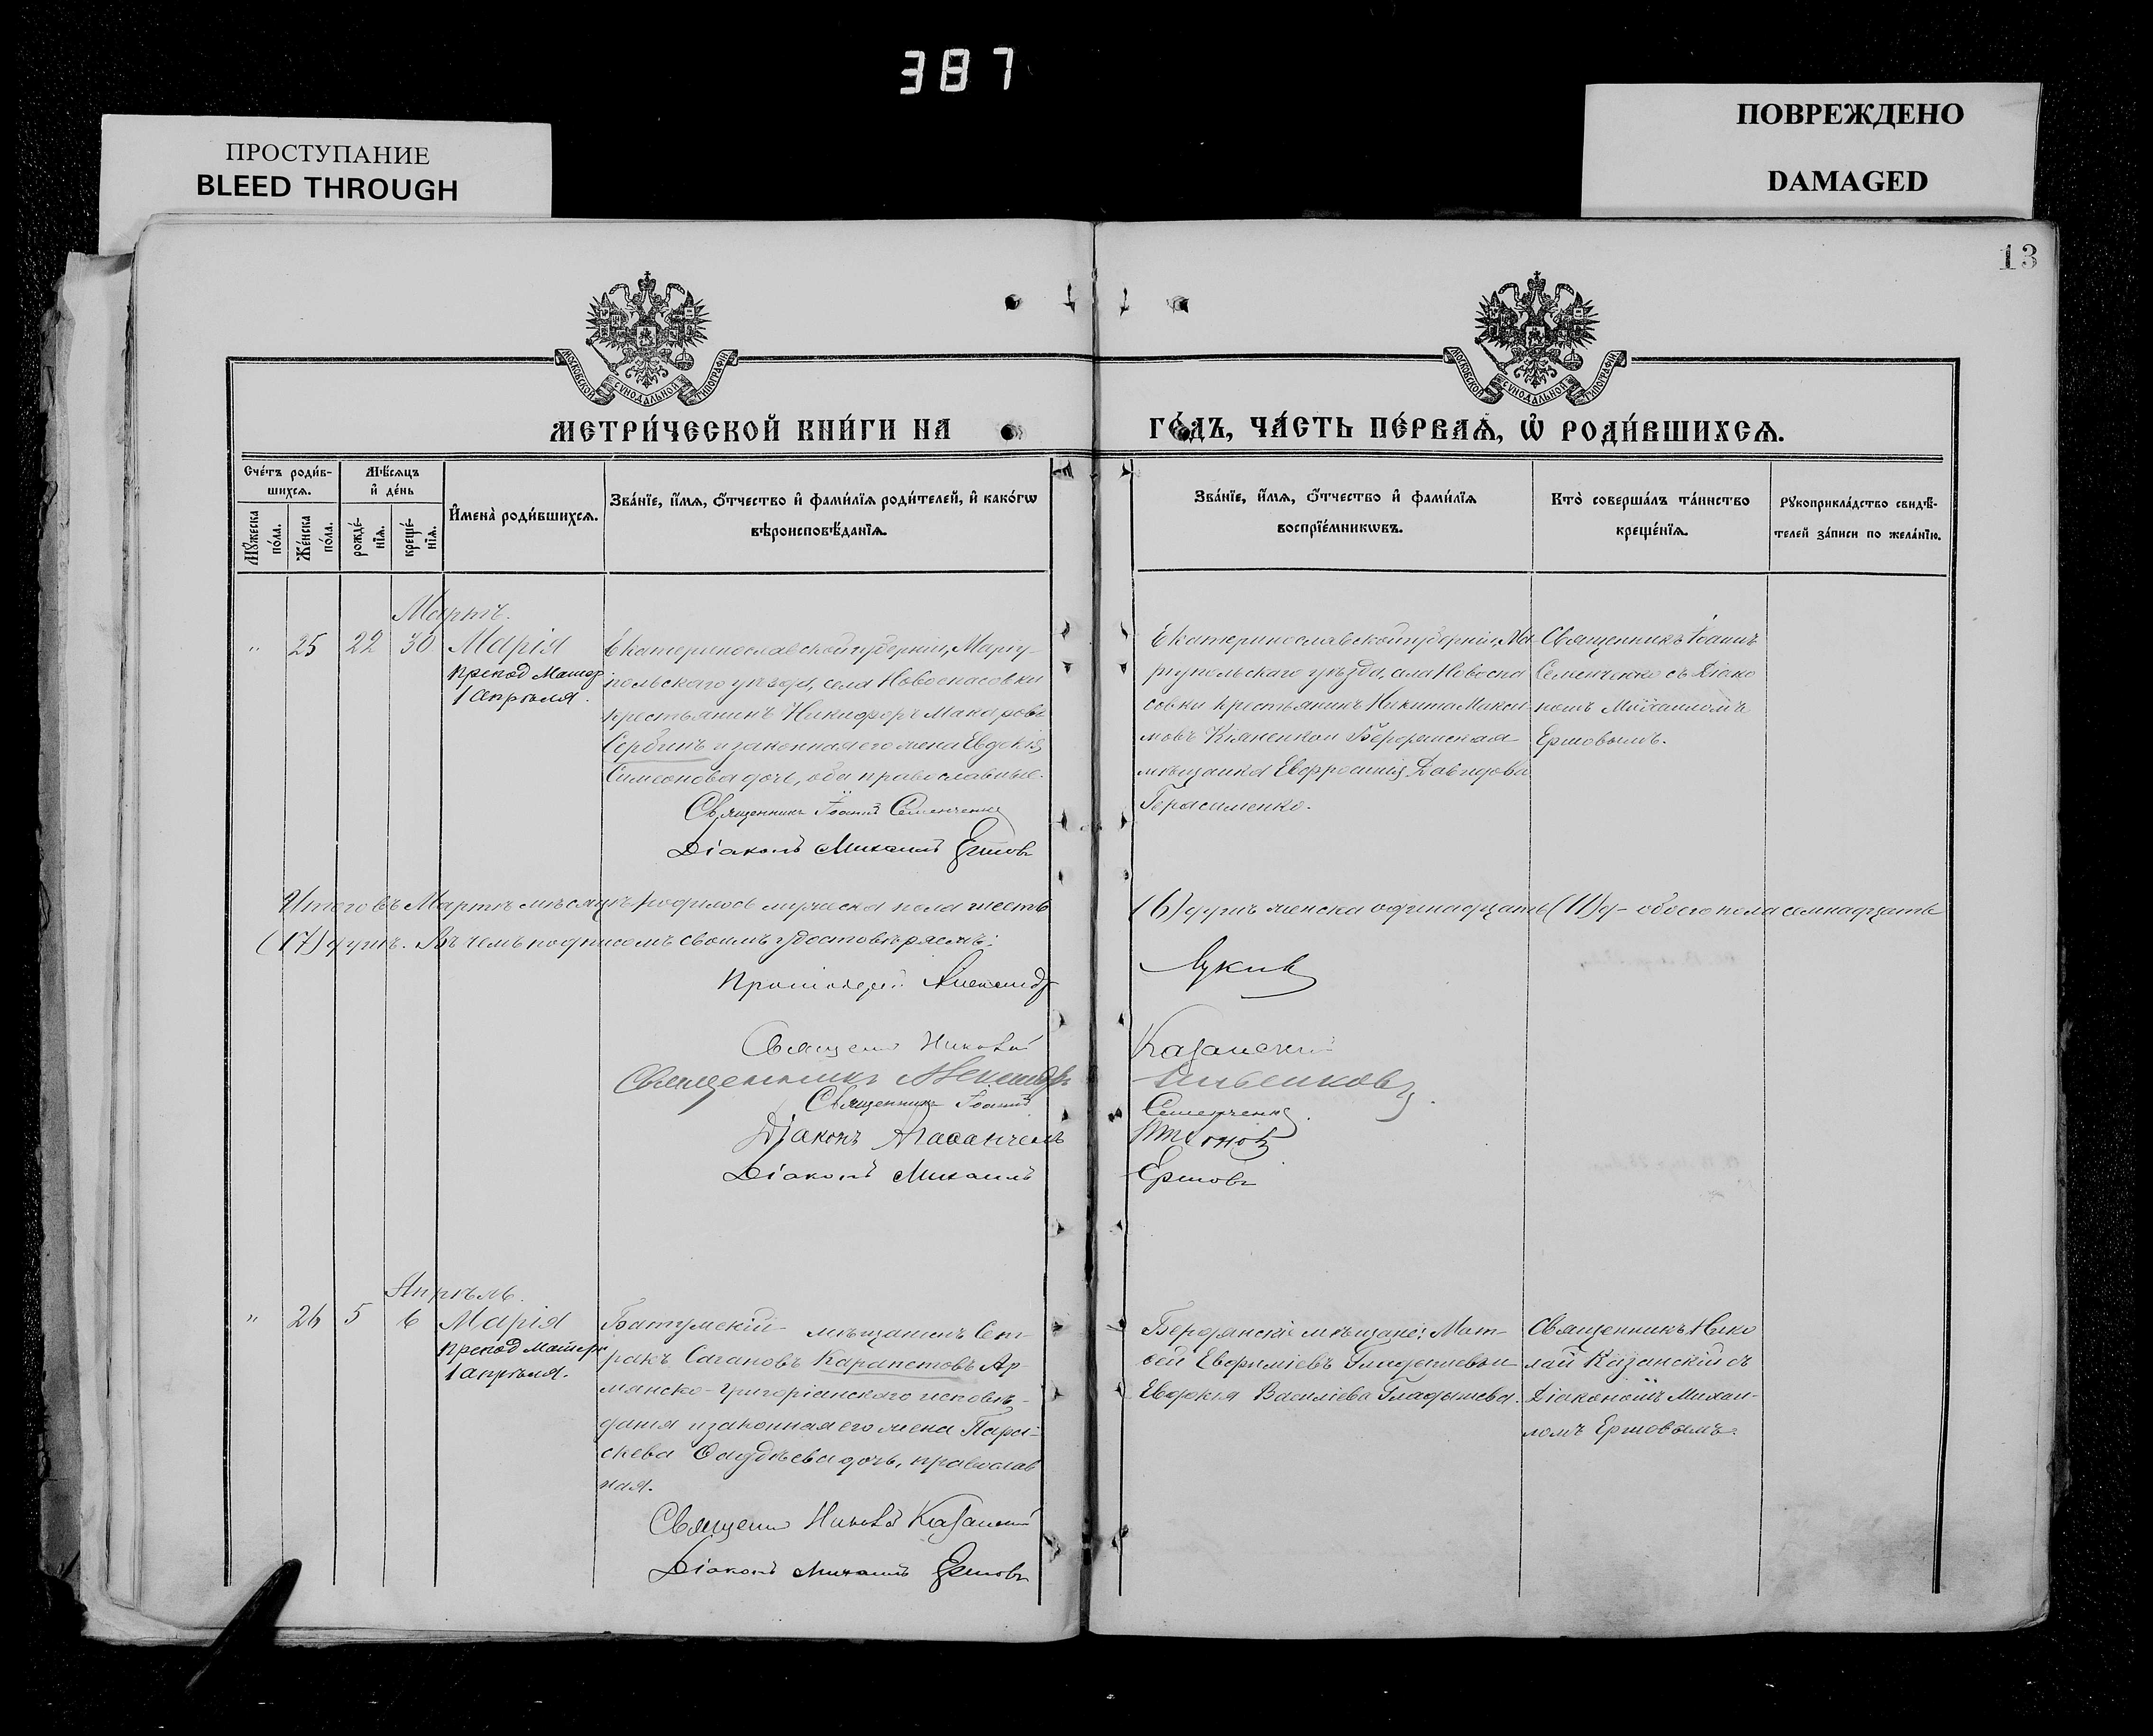 387
ПРОСТУПАНИЕ
BLEED THROUGH
ПОВРЕЖДЕНО
DAMAGED
13
МОСКОВСКОЙ СѴНОДАЛЬНОЙ ТИПОГРАФІИ
МОСКОВСКОЙ СѴНОДАЛЬНОЙ ТИПОГРАФІИ
МЕТРИ́ЧЕСКОЙ КНИ́ГИ НА
ГО́ДЪ, ЧА́СТЬ ПЕ́РВАѦ, Ѡ҆ РОДИ́ВШИХСѦ.
Сче́тъ роди́в-
шихсѧ.
Мѣ́сѧцъ
и҆ де́нь
Мꙋ́жеска
по́ла.
Же́нска
по́ла.
рожде́-
нїѧ.
креще́-
нїѧ.
И҆мена̀ роди́вшихсѧ.
Зва́нїе, и҆́мѧ, ѻ҆́тчество и҆ фами́лїѧ роди́телей, и҆ како́гѡ
вѣроисповѣ́данїѧ.
Зва́нїе, и҆́мѧ, ѻ҆́тчество и҆ фами́лїѧ
воспрїе́мникѡвъ.
Кто̀ соверша́лъ та́инство
креще́нїѧ.
Рꙋкоприкла́дство свидѣ́-
телей за́писи по жела́нїю.
Мартъ.
" 25 22 30 Марія
Препод
1 Апрѣля.
Екатеринославской губерніи, Маріу-
польскаго уѣзда, села Новоспасовки
крестьянинъ Никифоръ Макаровъ
Сербинъ и законная его жена Евдокія
Симеонова дочь, оба православные.
Священникъ Іоаннъ Семенченко
Діаконъ Михаилъ Ершовъ
Екатеринославской губерніи, Ма-
ріупольскаго уѣзда, села Новоспа
совки крестьянинъ Никита Макси-
мовъ и Бердянская
мѣщанка Евфросинія Давидова
Герасименко.
Священникъ Іоаннъ
Семенченко съ Діако
номъ Михаиломъ
Ершовымъ.
Итого въ Мартѣ мѣсяцѣ родилось мужеска пола шесть (6) душъ женска одинадцать (11) д- обоего пола семнадцать
(17) душъ. Въ чемъ подписомъ своимъ удостовѣряемъ:
Протоіерей Александръ Лукинъ
Священ Николай Казанскій
Священникъ Александръ
Священникъ Іоаннъ Семенченко
Діаконъ
Діаконъ Михаилъ Ершовъ
Апрѣль.
" 26 5 6 Марія
Препод
1 апрѣля.
Батумскій мѣщанинъ Сет-
ракъ Сагановъ Карапетовъ Ар-
мянско-Григоріанскаго исповѣ-
данія и законная его жена Пара-
скева Фаддѣева дочь, православ
ная.
Священ Николай Казанскій
Діаконъ Михаилъ Ершовъ
Бердянскіе мѣщане: Мат-
ѳей Евфиміевъ Гладышевъ и
Евдокія Василіева Гладышева.
Священникъ Нико
лай Казанскій съ
Діакономъ Михаи-
ломъ Ершовымъ.